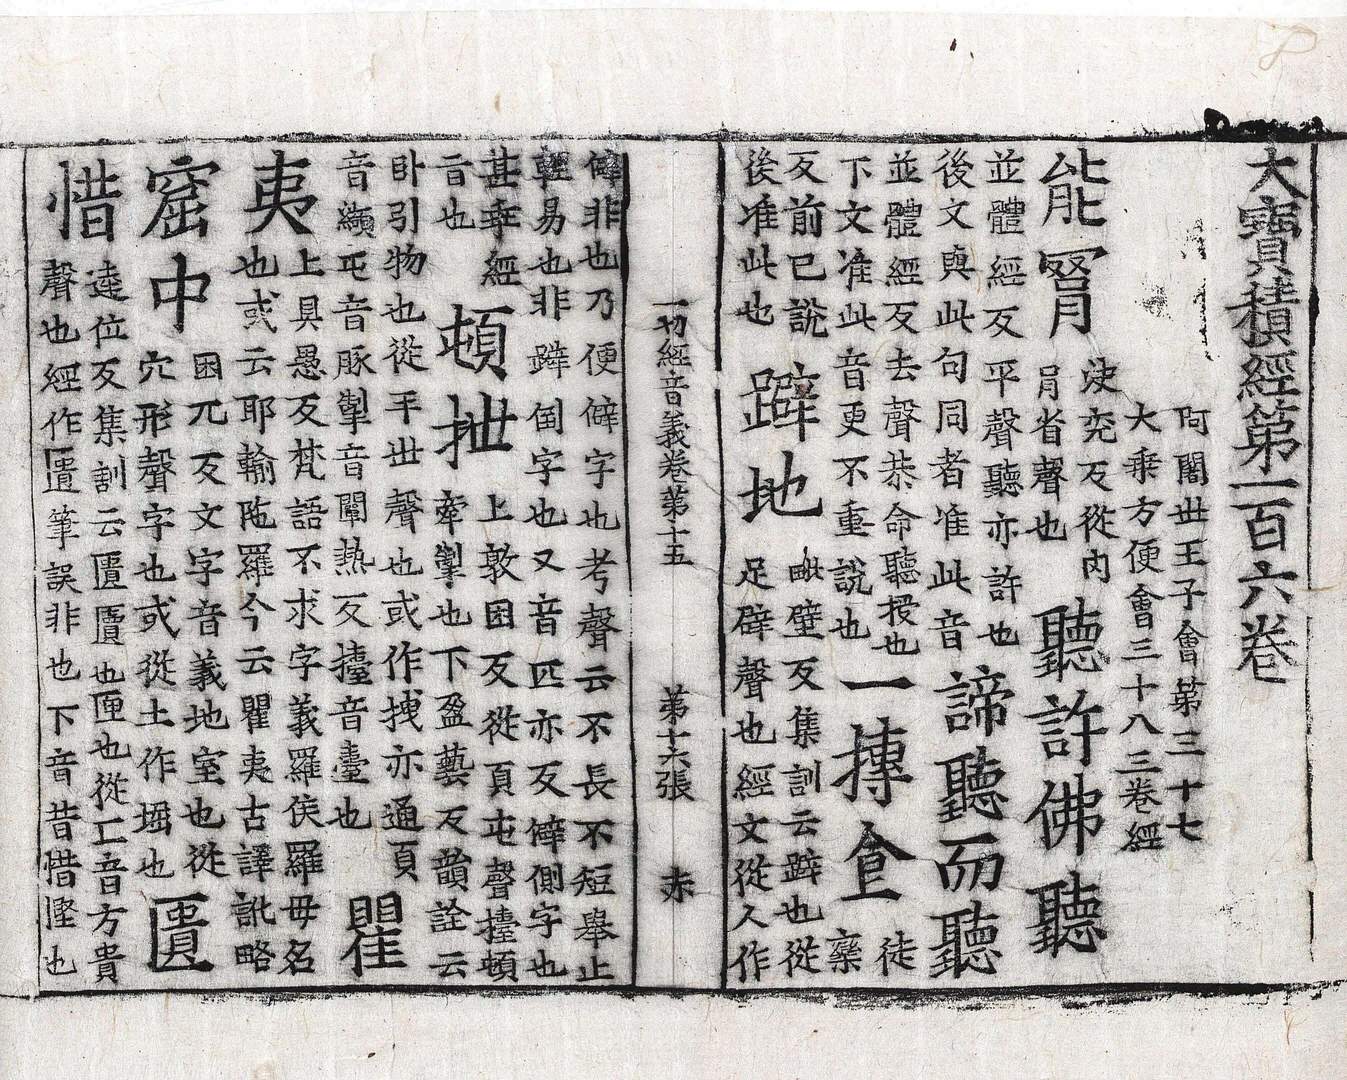 大寶積經第一百六卷
阿闍世王子會第三十七
大乘方便會三十八三卷經
能詈
決兖反從內
肙省聲也
聽許佛聽
並體經反平聲聽亦許也
後文與此句同者准此音
諦聽而聽
並體經反去聲恭命聽授也
下文准此音更不重說也
一摶食
徒
欒
反前已說
後准此也
躃地
毗壁反集訓云躃也從
足辟聲也經文從人作
一切經音義卷第十五 第十六張 赤
僻非也乃便僻字也考聲云不長不短舉止
輕易也非躃倒字也又音匹亦反僻側字也
甚乖經
音也
頓拙
上敦困反從頁屯聲擡頓
牽掣也下盈藝反韻詮云
臥引物也從手世聲也或作拽亦通頁
音纈屯音豚掣音闡熱反擡音臺也
瞿
夷
上具愚反梵語不求字義羅侯羅母名
也或云耶輸陁羅今云瞿夷古譯訛略
窟中
困兀反文字音義地室也從
穴形聲字也或從土作堀也
匱
惜
逵位反集訓云匱匵也匣也從匚音方貴
聲也經作遺筆誤非也下音昔惜慳也